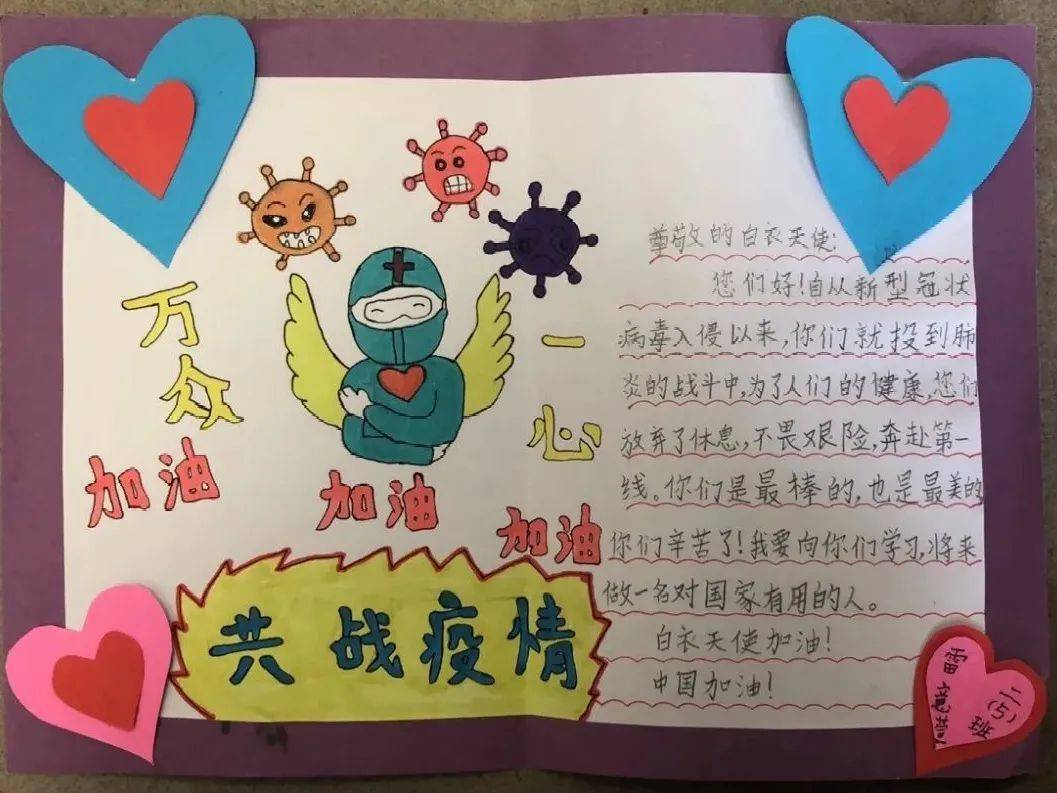 万众
一心
加油
加油
加油
共战疫情
尊敬的白衣天使:
您们好!自从新型冠状
病毒入侵以来,你们就投到肺
炎的战斗中,为了人们的健康,您们
放弃了休息,不畏艰险,奔赴第一
线。你们是最棒的,也是最美的
你们辛苦了!我要向你们学习,将来
做一名对国家有用的人。
白衣天使加油!
中国加油!
二(5)班
雷